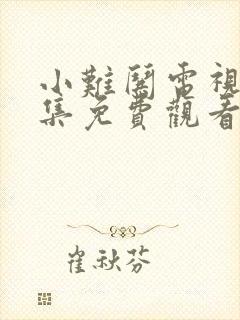 小難鬧電視
集免費觀看
崔秋芬